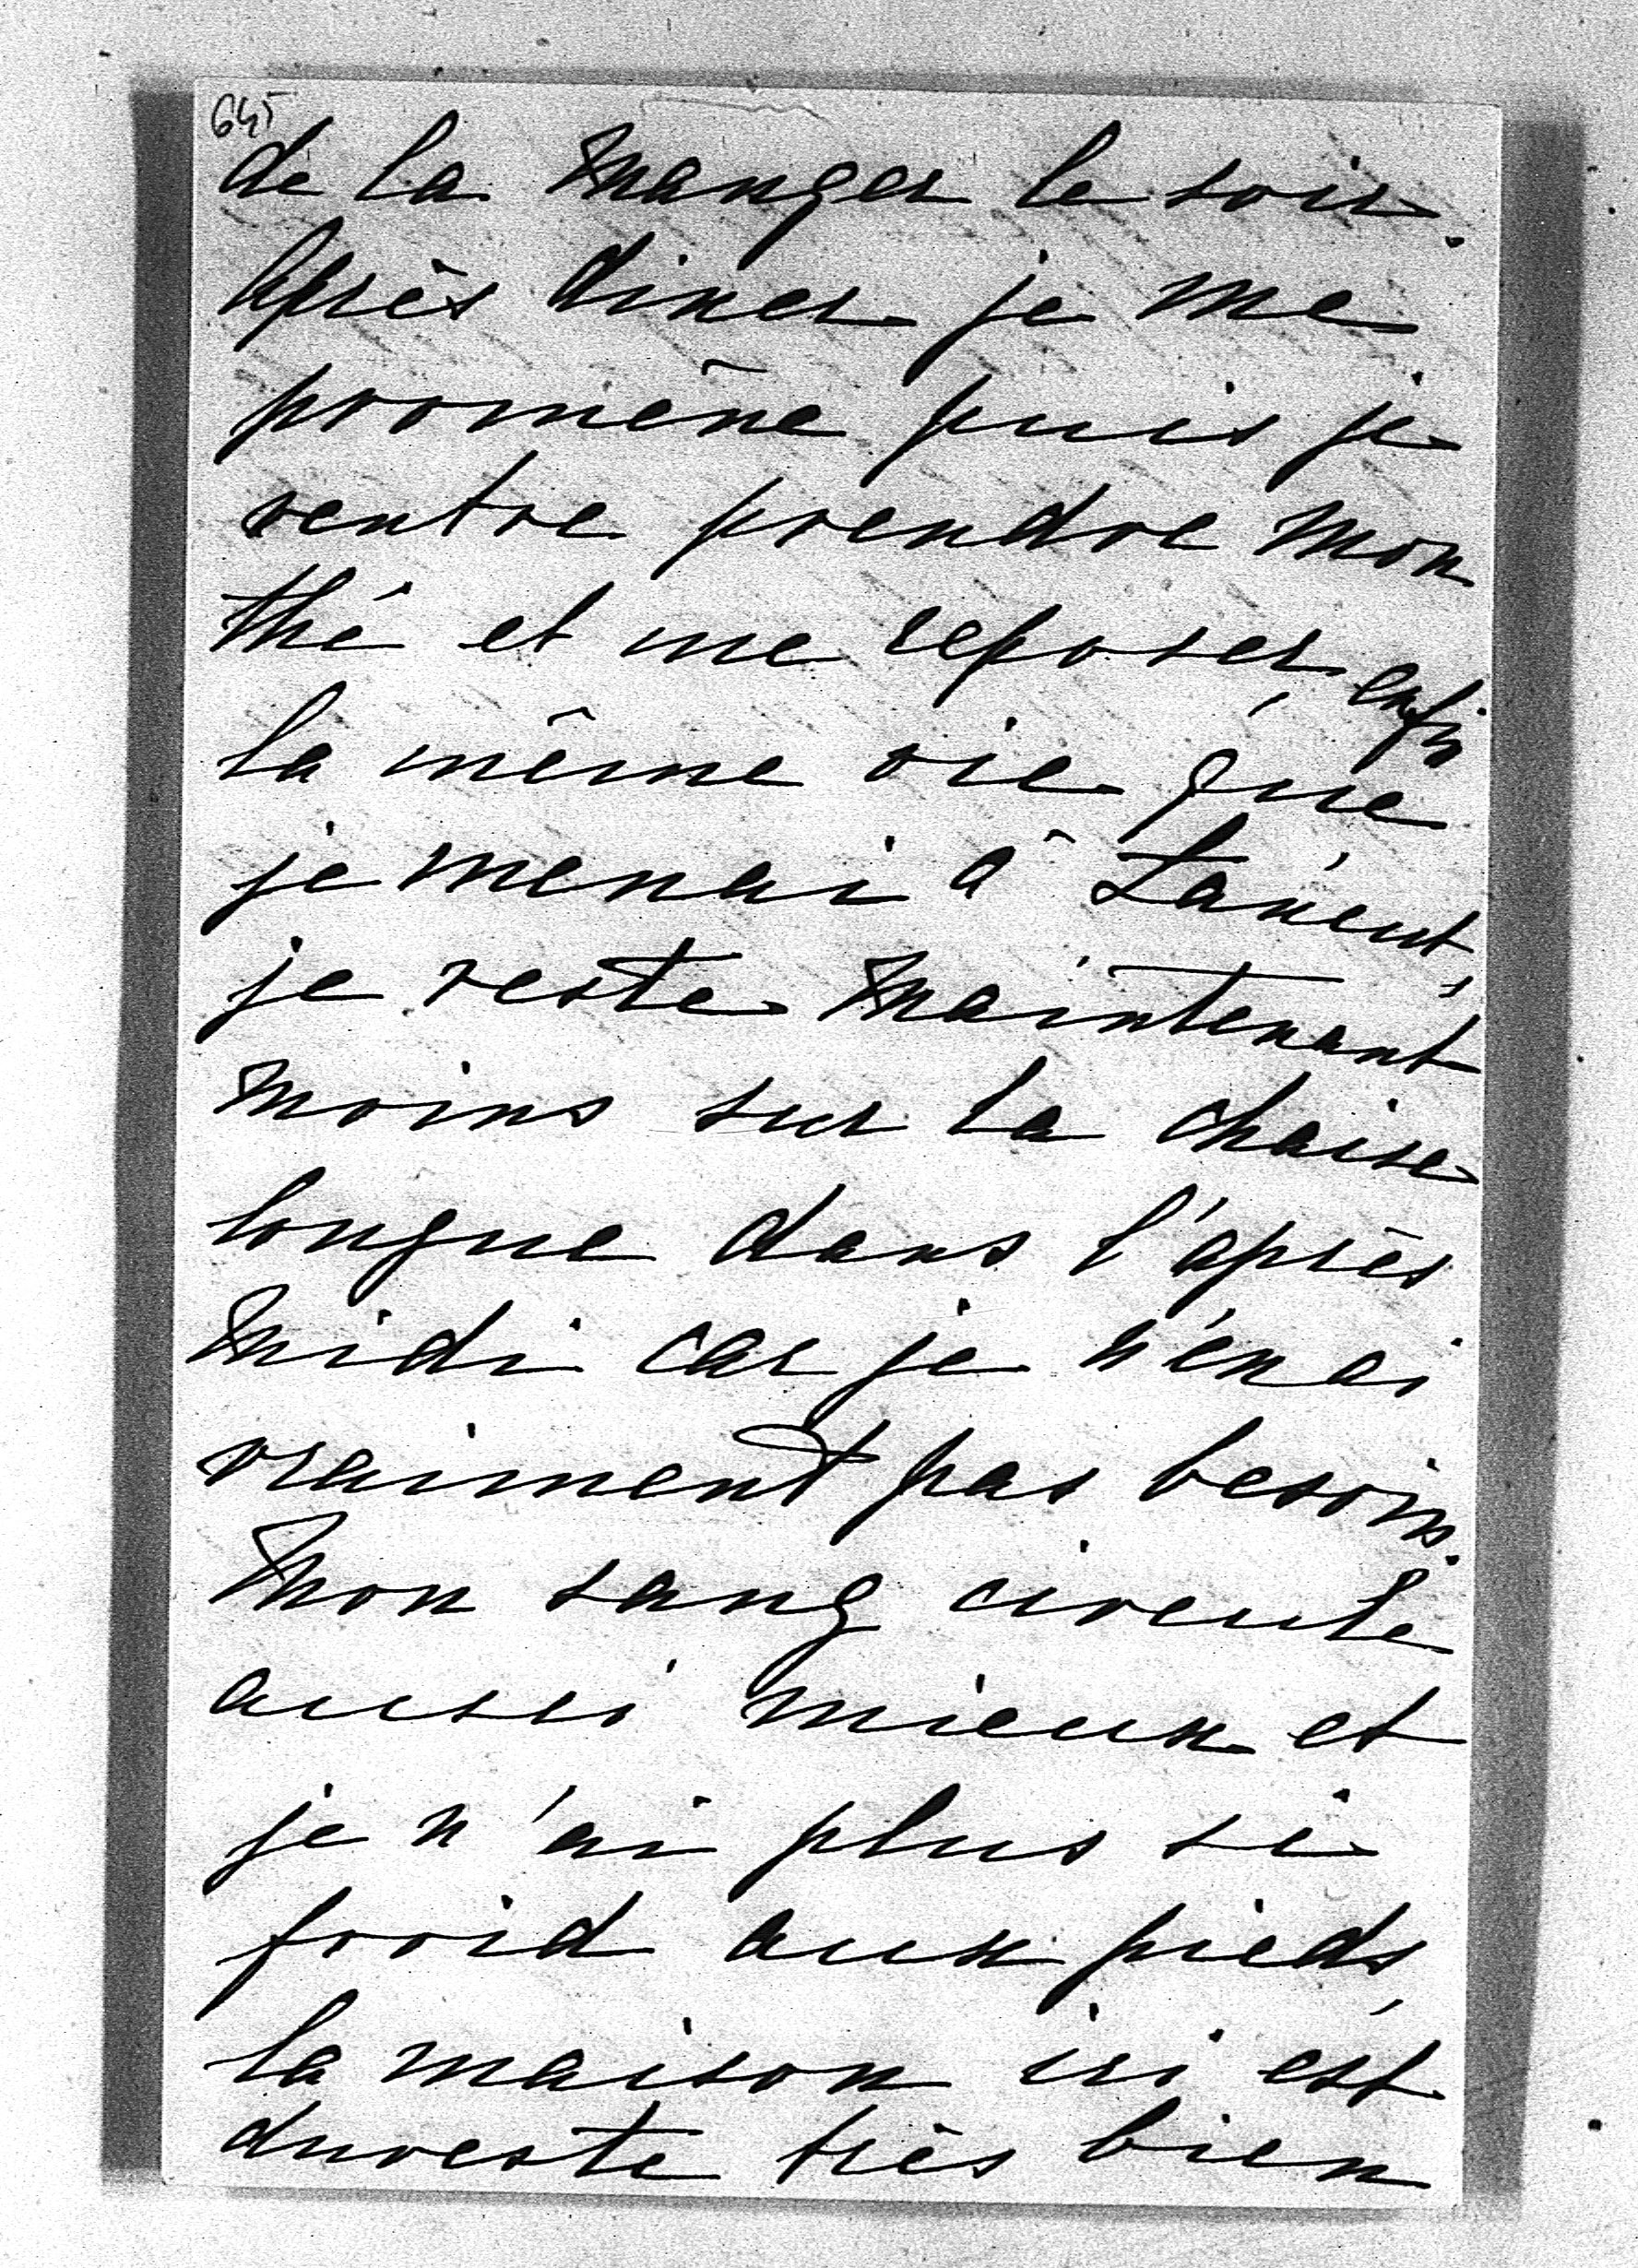 645
de la manger le soir.
Après diner je me
promène puis je
rentre prendre mon
thé et me reposer, enfin
la même vie que
je menai à
je reste maintenant
moins sur la chaise
longue dans l'après
midi car je n'en ai
vraiment pas besoin.
Mon sang circule
aussi mieux et
je n'ai plus si
froid aux pieds,
la maison ici est
dureste très bien